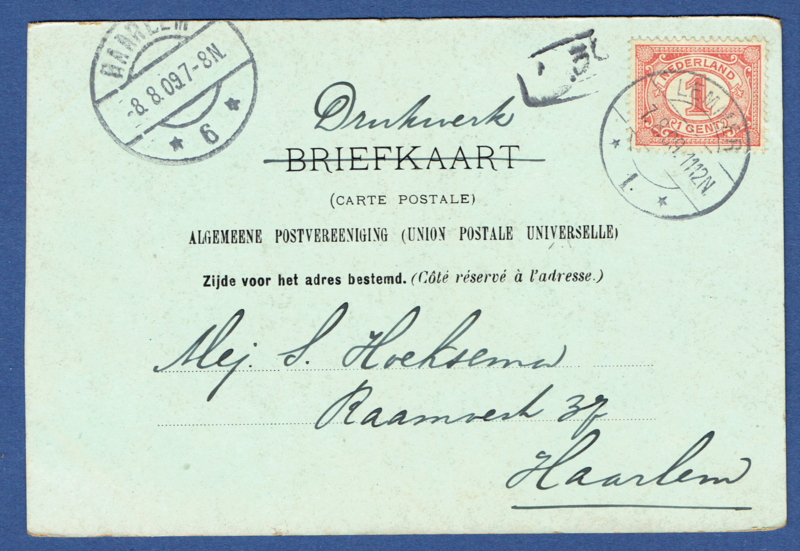 HAARLEM
-8.8.09.7-8N.
* 6 *
NEDERLAND
1
1 CENT
7.8.09.11-12N.
* 1. *
Drukwerk
BRIEFKAART
(CARTE POSTALE)
ALGEMEENE POSTVEREENIGING (UNION POSTALE UNIVERSELLE)
Zijde voor het adres bestemd. (Côté réservé à l'adresse.)
Mej. S. Hoeksema
Raamvest 37
Haarlem